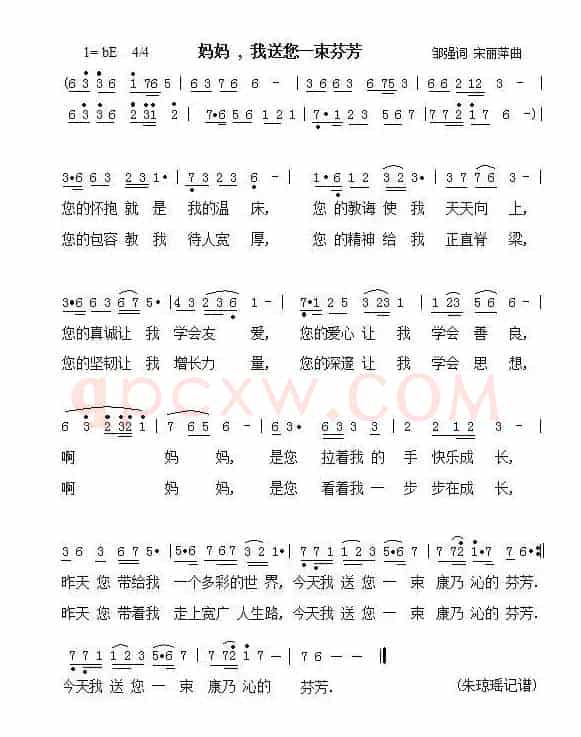 1= bE 4/4 妈妈，我送您一束芬芳 邹强词 宋丽萍曲
(6 3 3 6 1 765 | 6 3 7 6 6 - | 3663 6 753 | 6 6 2 12 3 - |
6 3 3 6 2 231 2 | 7•6 5 6 1 2 1 | 7•1 2 3 5 6 7 | 7 7 2 1 7 6 -)|
3•6 6 3 2 3 1• | 7 3 2 3 6 - | 1•6 1 2 3 2 3• | 3 7 7 6 3 - |
您的怀抱 就 是 我的温 床, 您 的教诲 使 我 天天向 上,
您的包容 教 我 待人宽 厚, 您 的精神 给 我 正直脊 梁,
3•6 6 3 6 7 5• | 4 3 2 3 6 1 - | 7•1 2 5 3 23 1• | 1 23 5 6 6 - |
您的真诚让 我 学会友 爱, 您的爱心 让 我 学会 善 良,
您的坚韧让 我 增长力 量, 您的深邃 让 我 学会 思 想,
qpcxw.COM
6 3 2 32 1 | 7 6 5 6 - | 6 3• 6 3 3 5 6 3 | 2 2 1 2 3 - |
啊 妈 妈, 是您 拉着我 的 手 快乐成 长,
啊 妈 妈, 是您 看着我 一 步 步在成 长,
3 6 3 6 7 6 5• | 5•6 7 6 7 3 2 1• | 7 7 1 1 2 3 5•6 7 | 7 72 1•7 7 6•:||
昨天 您 带给我 一个多彩的世 界, 今天我 送 您 一 束 康乃 沁的 芬芳.
昨天 您 带着我 走上宽广 人生路, 今天我 送 您 一 束 康乃 沁的 芬芳.
7 7 1 1 2 3 5•6 7 | 7 72 1• 7 | 7 6 - - ||
今天我 送 您 一 束 康乃 沁的 芬芳. (朱琼瑶记谱)